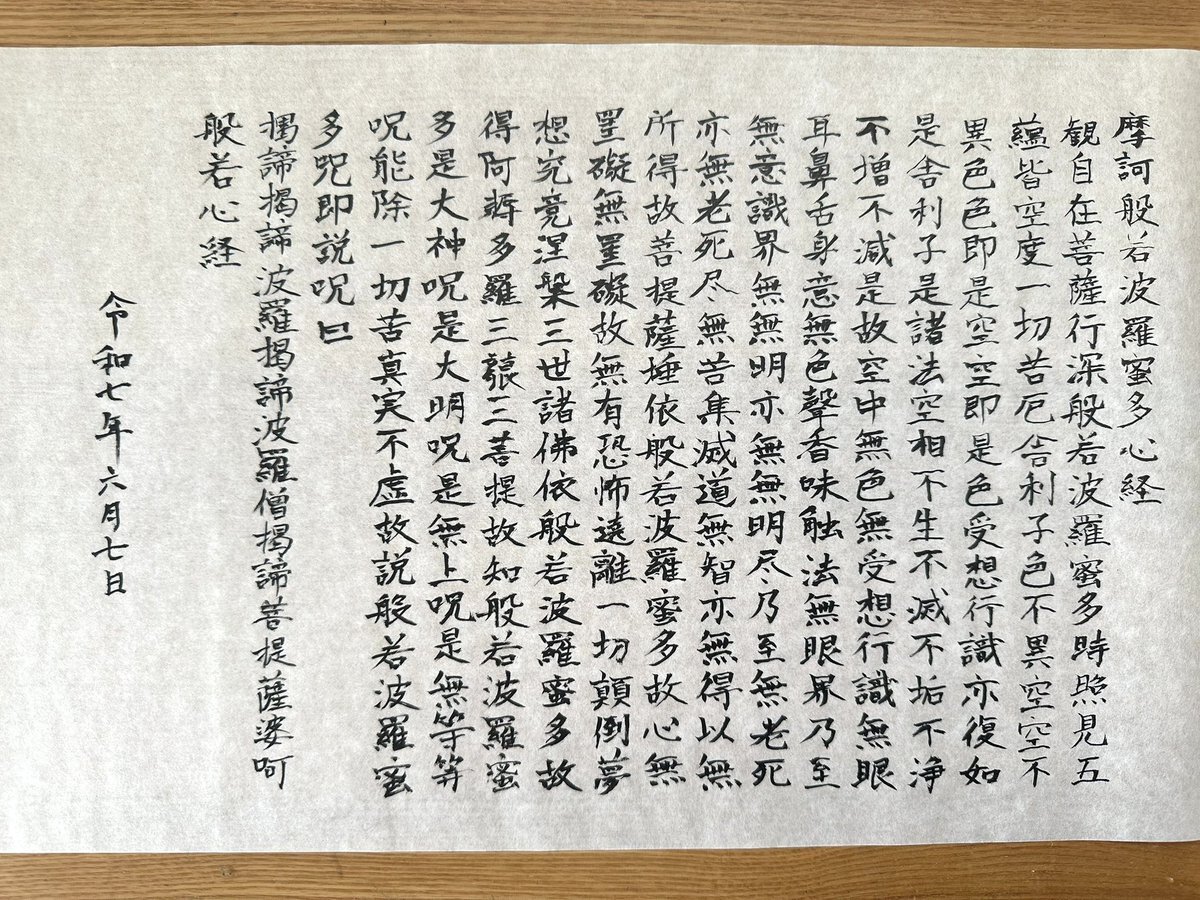 摩訶般若波羅蜜多心経
観自在菩薩行深般若波羅蜜多時照見五
蘊皆空度一切苦厄舎利子色不異空空不
異色色即是空空即是色受想行識亦復如
是舎利子是諸法空相不生不滅不垢不浄
不増不減是故空中無色無受想行識無眼
耳鼻舌身意無色聲香味触法無眼界乃至
無意識界無無明亦無無明尽乃至無老死
亦無老死尽無苦集滅道無智亦無得以無
所得故菩提薩埵依般若波羅蜜多故心無
罣礙無罣礙故無有恐怖遠離一切顛倒夢
想究竟涅槃三世諸佛依般若波羅蜜多故
得阿耨多羅三藐三菩提故知般若波羅蜜
多是大神呪是大明呪是無上呪是無等等
呪能除一切苦真実不虚故説般若波羅蜜
多呪即説呪曰
揭諦揭諦波羅揭諦波羅僧揭諦菩提薩婆呵
般若心経
令和七年六月七日